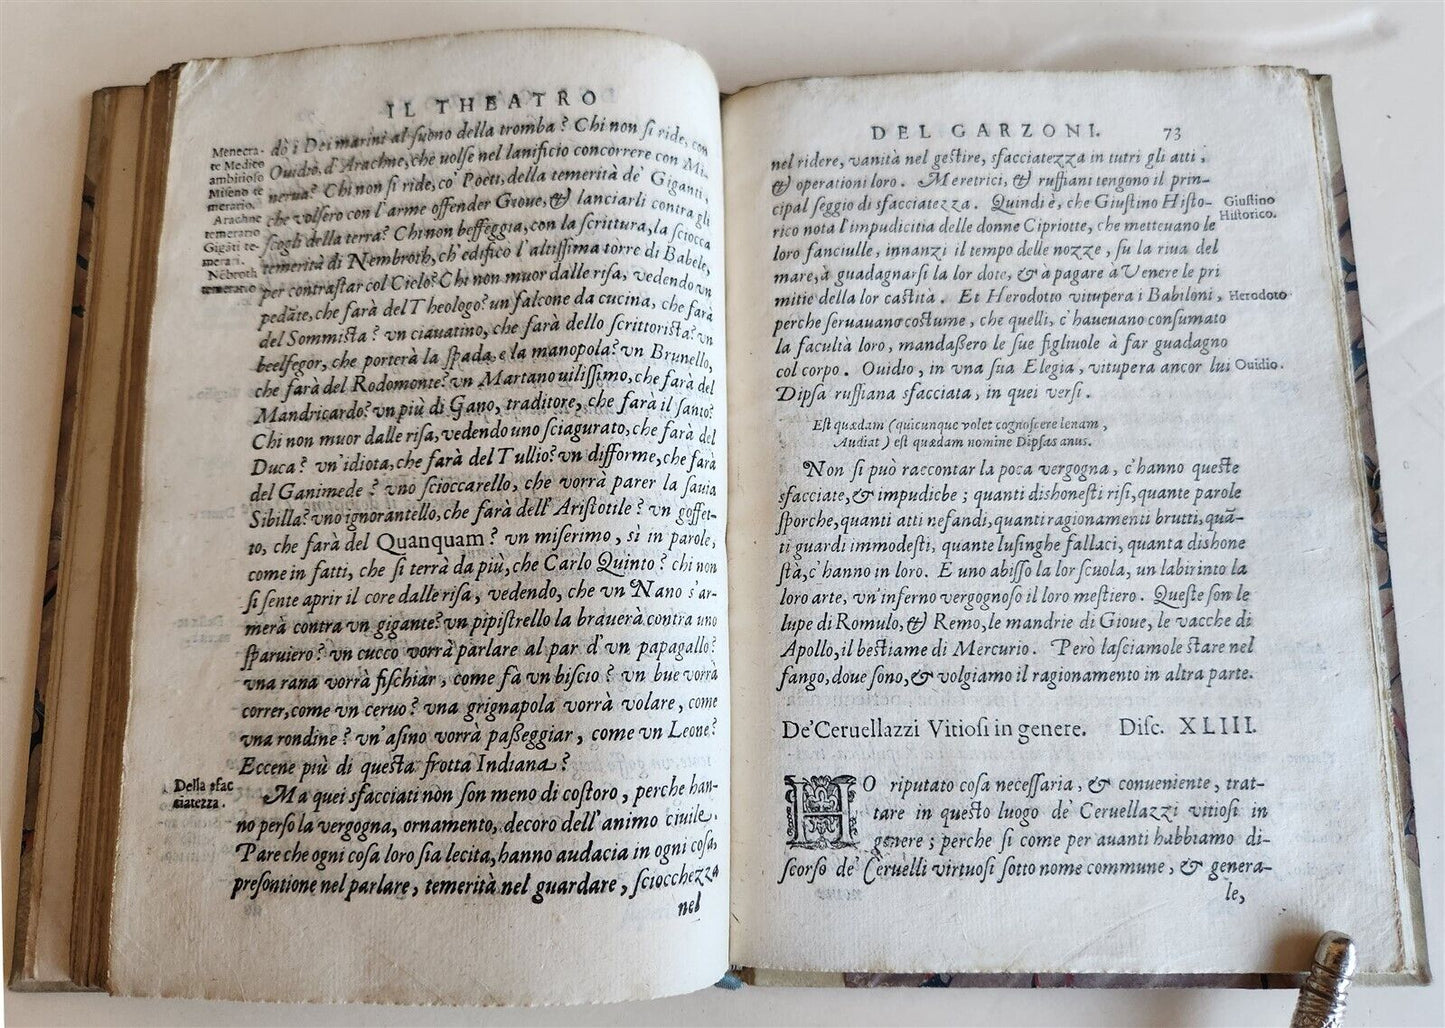 IL THEATRO
Menecra-
te Medico
ambitioso
Miseno te
merario.
Arachne
temeraria
Gigāti te-
merari.
Nébroth
temerario
dò i Dei marini al suono della tromba? Chi non si ride, con
Ouidio, d'Arachne, che volse nel lanificio concorrere con Mi-
nerua? Chi non si ride, co' Poëti, della temerità de' Giganti,
che volsero con l'arme offender Gioue, & lanciarli contra gli
scogli della terra? Chi non beffeggia, con la scrittura, la sciocca
temerità di Nembroth, ch' edificò l'altissima torre di Babele,
per contrastar col Cielo? Chi non muor dalle risa, vedendo vn
pedāte, che farà del Theologo? un falcone da cucina, che farà
del Sommista? vn ciauatino, che farà dello scrittorista? vn
beelfegor, che porterà la spada, e la manopola? vn Brunello,
che farà del Rodomonte? vn Martano uilissimo, che farà del
Mandricardo? vn più di Gano, traditore, che farà il santo?
Chi non muor dalle risa, vedendo uno sciagurato, che farà del
Duca? vn'idiota, che farà del Tullio? vn difforme, che farà
del Ganimede? uno scioccarello, che vorrà parer la sauia
Sibilla? uno ignorantello, che farà dell'Aristotile? vn goffet-
to, che farà del Quanquam? vn miserimo, sì in parole,
come in fatti, che si terrà da più, che Carlo Quinto? chi non
si sente aprir il core dalle risa, vedendo, che vn Nano s'ar-
merà contra vn gigante? vn pipistrello la brauerà contra uno
sparuiero? vn cucco vorrà parlare al par d'vn papagallo?
vna rana vorrà fischiar, come fà vn biscio? vn bue vorrà
correr, come vn ceruo? vna grignapola vorrà volare, come
vna rondine? vn'asino vorrà passeggiar, come vn Leone?
Eccene più di questa frotta Indiana?
Della sfac
ciatezza.
Ma quei sfacciati nòn son meno di costoro, perche han-
no perso la vergogna, ornamento, decoro dell'animo ciuile.
Pare che ogni cosa loro sia lecita, hanno audacia in ogni cosa,
presontione nel parlare, temerità nel guardare, sciocchezza
nel
DEL GARZONI. 73
nel ridere, vanità nel gestire, sfacciatezza in tutri gli atti,
& operationi loro. Meretrici, & ruffiani tengono il prin-
cipal seggio di sfacciatezza. Quindi è, che Giustino Histo-
rico nota l'impudicitia delle donne Cipriotte, che metteuano le
loro fanciulle, innanzi il tempo delle nozze, su la riua del
mare, à guadagnarsi la lor dote, & à pagare à Venere le pri
mitie della lor castità. Et Herodotto vitupera i Babiloni,
perche seruauano costume, che quelli, c'haueuano consumato
la facultà loro, mandassero le sue figliuole à far guadagno
col corpo. Ouidio, in una sua Elegia, vitupera ancor lui
Dipsa ruffiana sfacciata, in quei versi.
Giustino
Historico.
Herodoto
Ouidio.
Est quædam (quicunque volet cognoscere lenam,
Audiat) est quædam nomine Dipsas anus.
Non si può raccontar la poca vergogna, c'hanno queste
sfacciate, & impudiche; quanti dishonesti risi, quante parole
sporche, quanti atti nefandi, quanti ragionamenti brutti, quā-
ti guardi immodesti, quante lusinghe fallaci, quanta dishone
stà, c'hanno in loro. E uno abisso la lor scuola, un labirinto la
loro arte, vn'inferno vergognoso il loro mestiero. Queste son le
lupe di Romulo, & Remo, le mandrie di Gioue, le vacche di
Apollo, il bestiame di Mercurio. Però lasciamole stare nel
fango, doue sono, & volgiamo il ragionamento in altra parte.
De' Ceruellazzi Vitiosi in genere. Disc. XLIII.
HO riputato cosa necessaria, & conueniente, trat-
tare in questo luogo de' Ceruellazzi vitiosi in
genere; perche si come per auanti habbiamo di-
scorso de' Ceruelli virtuosi sotto nome commune, & genera-
le,